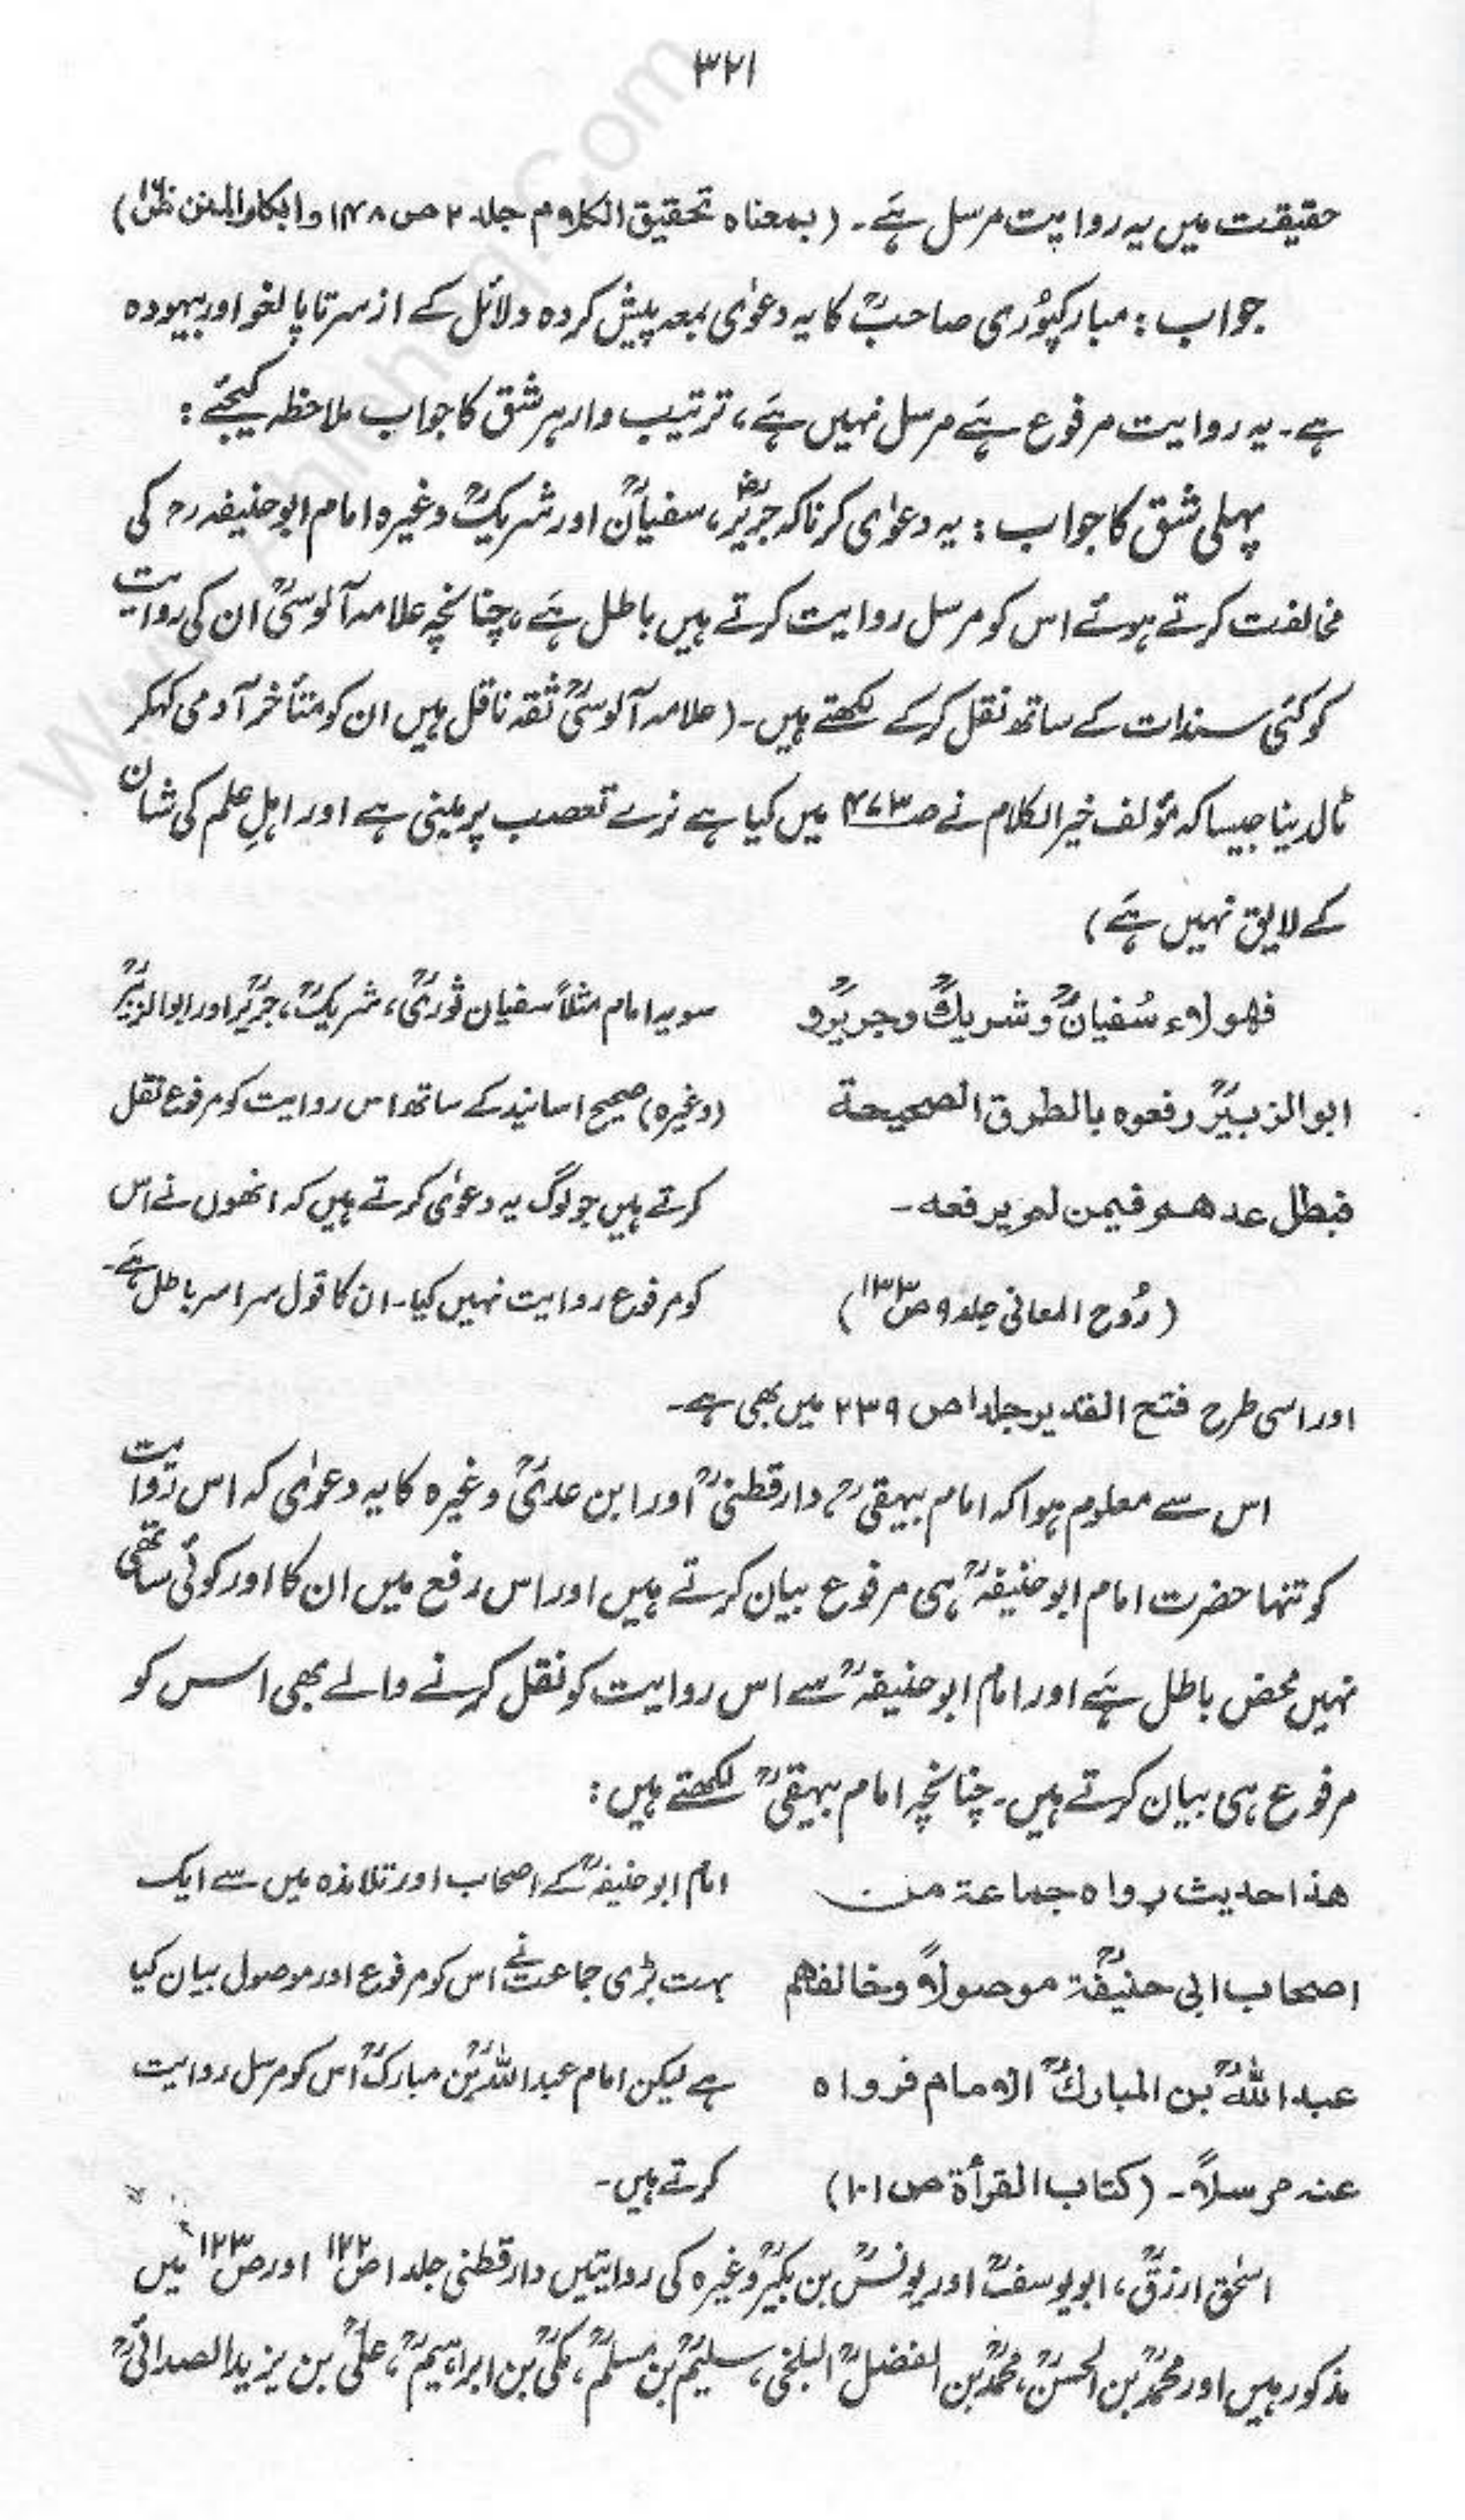 ۳۲۱
حقیقت میں یہ روایت مرسل ہَے۔ (بمعناہ تحقیق الکلام جلد ۲ ص ۱۴۸ وابکار المنن)
جواب : مبارکپُوری صاحبؒ کا یہ دعوٰی بمعہ پیش کردہ دلائل کے از سر تا پا لغو اور بیہودہ
ہے۔ یہ روایت مرفوع ہَے مرسل نہیں ہَے، ترتیب وار ہر شق کا جواب ملاحظہ کیجئے :
پہلی شق کا جواب : یہ دعوٰی کرنا کہ جریرؒ، سفیانؒ اور شریکؒ وغیرہ امام ابو حنیفہ رح کی
مخالفت کرتے ہوئے اس کو مرسل روایت کرتے ہیں باطل ہَے، چنانچہ علامہ آلوسیؒ ان کی روایت
کو کئی سندات کے ساتھ نقل کرکے لکھتے ہیں۔ (علامہ آلوسیؒ ثقہ ناقل ہیں ان کو متأخر آدمی کہکر
ٹالدینا جیسا کہ مؤلف خیر الکلام نے صـ۴۷۳ میں کیا ہے نرے تعصب پر مبنی ہے اور اہلِ علم کی شان
کے لایق نہیں ہَے)
فھولاء سُفیانؒ و شریکؒ وجریرؒ و
ابو الزبیرؒ رفعوہ بالطرق الصحیحة
فبطل عدھم فیمن لم یرفعه۔
(رُوح المعانی جلد ۹ ص۱۳۳)
سو یہ امام مثلاً سفیان ثوریؒ، شریکؒ، جریرؒ اور ابوالزبیرؒ
(وغیرہ) صحیح اسانید کے ساتھ اس روایت کو مرفوع نقل
کرتے ہیں جو لوگ یہ دعوٰی کرتے ہیں کہ انھوں نے اس
کو مرفوع روایت نہیں کیا۔ ان کا قول سراسر باطل ہَے۔
اور اسی طرح فتح القدیر جلد۱ ص ۲۳۹ میں بھی ہے۔
اس سے معلوم ہوا کہ امام بیہقیؒ، دارقطنیؒ اور ابن عدیؒ وغیرہ کا یہ دعوٰی کہ اس روایت
کو تنہا حضرت امام ابو حنیفہؒ ہی مرفوع بیان کرتے ہیں اور اس رفع میں ان کا اور کوئی ساتھی
نہیں محض باطل ہَے اور امام ابو حنیفہؒ سے اس روایت کو نقل کرنے والے بھی اس کو
مرفوع ہی بیان کرتے ہیں۔ چنانچہ امام بیہقیؒ لکھتے ہیں :
ھذا حدیث رواہ جماعة من
اصحاب ابی حنیفةؒ موصولاً وخالفھم
عبداللهؒ بن المبارکؒ الامام فرواہ
عنہ مرسلاً۔ (کتاب القرأة ص ۱۰۱)
امام ابو حنیفہؒ کے اصحاب اور تلامذہ میں سے ایک
بہت بڑی جماعت نے اس کو مرفوع اور موصول بیان کیا
ہے لیکن امام عبداللہؒ بن مبارکؒ اس کو مرسل روایت
کرتے ہیں۔
اسحٰق ازرقؒ، ابو یوسفؒ اور یونسؒ بن بکیرؒ وغیرہ کی روایتیں دارقطنی جلد ۱ ص۱۲۲ اور ص۱۲۳ میں
مذکور ہیں اور محمدؒ بن الحسنؒ، محمدؒ بن الفضلؒ البلخی، سلیمؒ بن مسلمؒ، مکیؒ بن ابراہیمؒ، علیؒ بن یزید الصدائیؒ